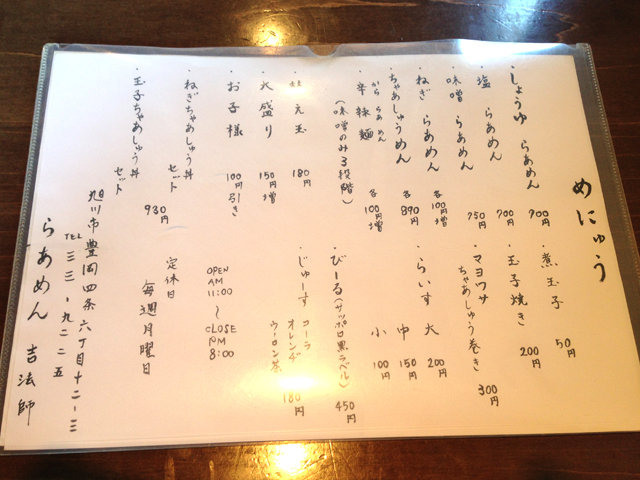 めにゅう
・しょうゆ らあめん 700円
・塩 らあめん 700円
・味噌 らあめん 750円
・ねぎ らあめん 各100円増
・ちゃあしゅうめん 各890円
・から らあ めん
辛辣麺 各100円増
(味噌のみ3段階)
・替え玉 180円
・大盛り 150円増
・お子様 100円引き
・ねぎちゃあしゅう丼 セット
・玉子ちゃあしゅう丼 セット
930円
・煮玉子 50円
・玉子焼き 200円
・マヨワサ
ちゃあしゅう巻き 300円
・らいす 大 200円
中 150円
小 100円
・びーる(サッポロ黒ラベル) 450円
・じゅーす コーラ
オレンヂ
ウーロン茶 180円
OPEN
AM
11:00
〜
CLOSE
PM
8:00
定休日
毎週月曜日
旭川市豊岡四条六丁目十二-三
TEL 三三-九二二五
らあめん 吉法師